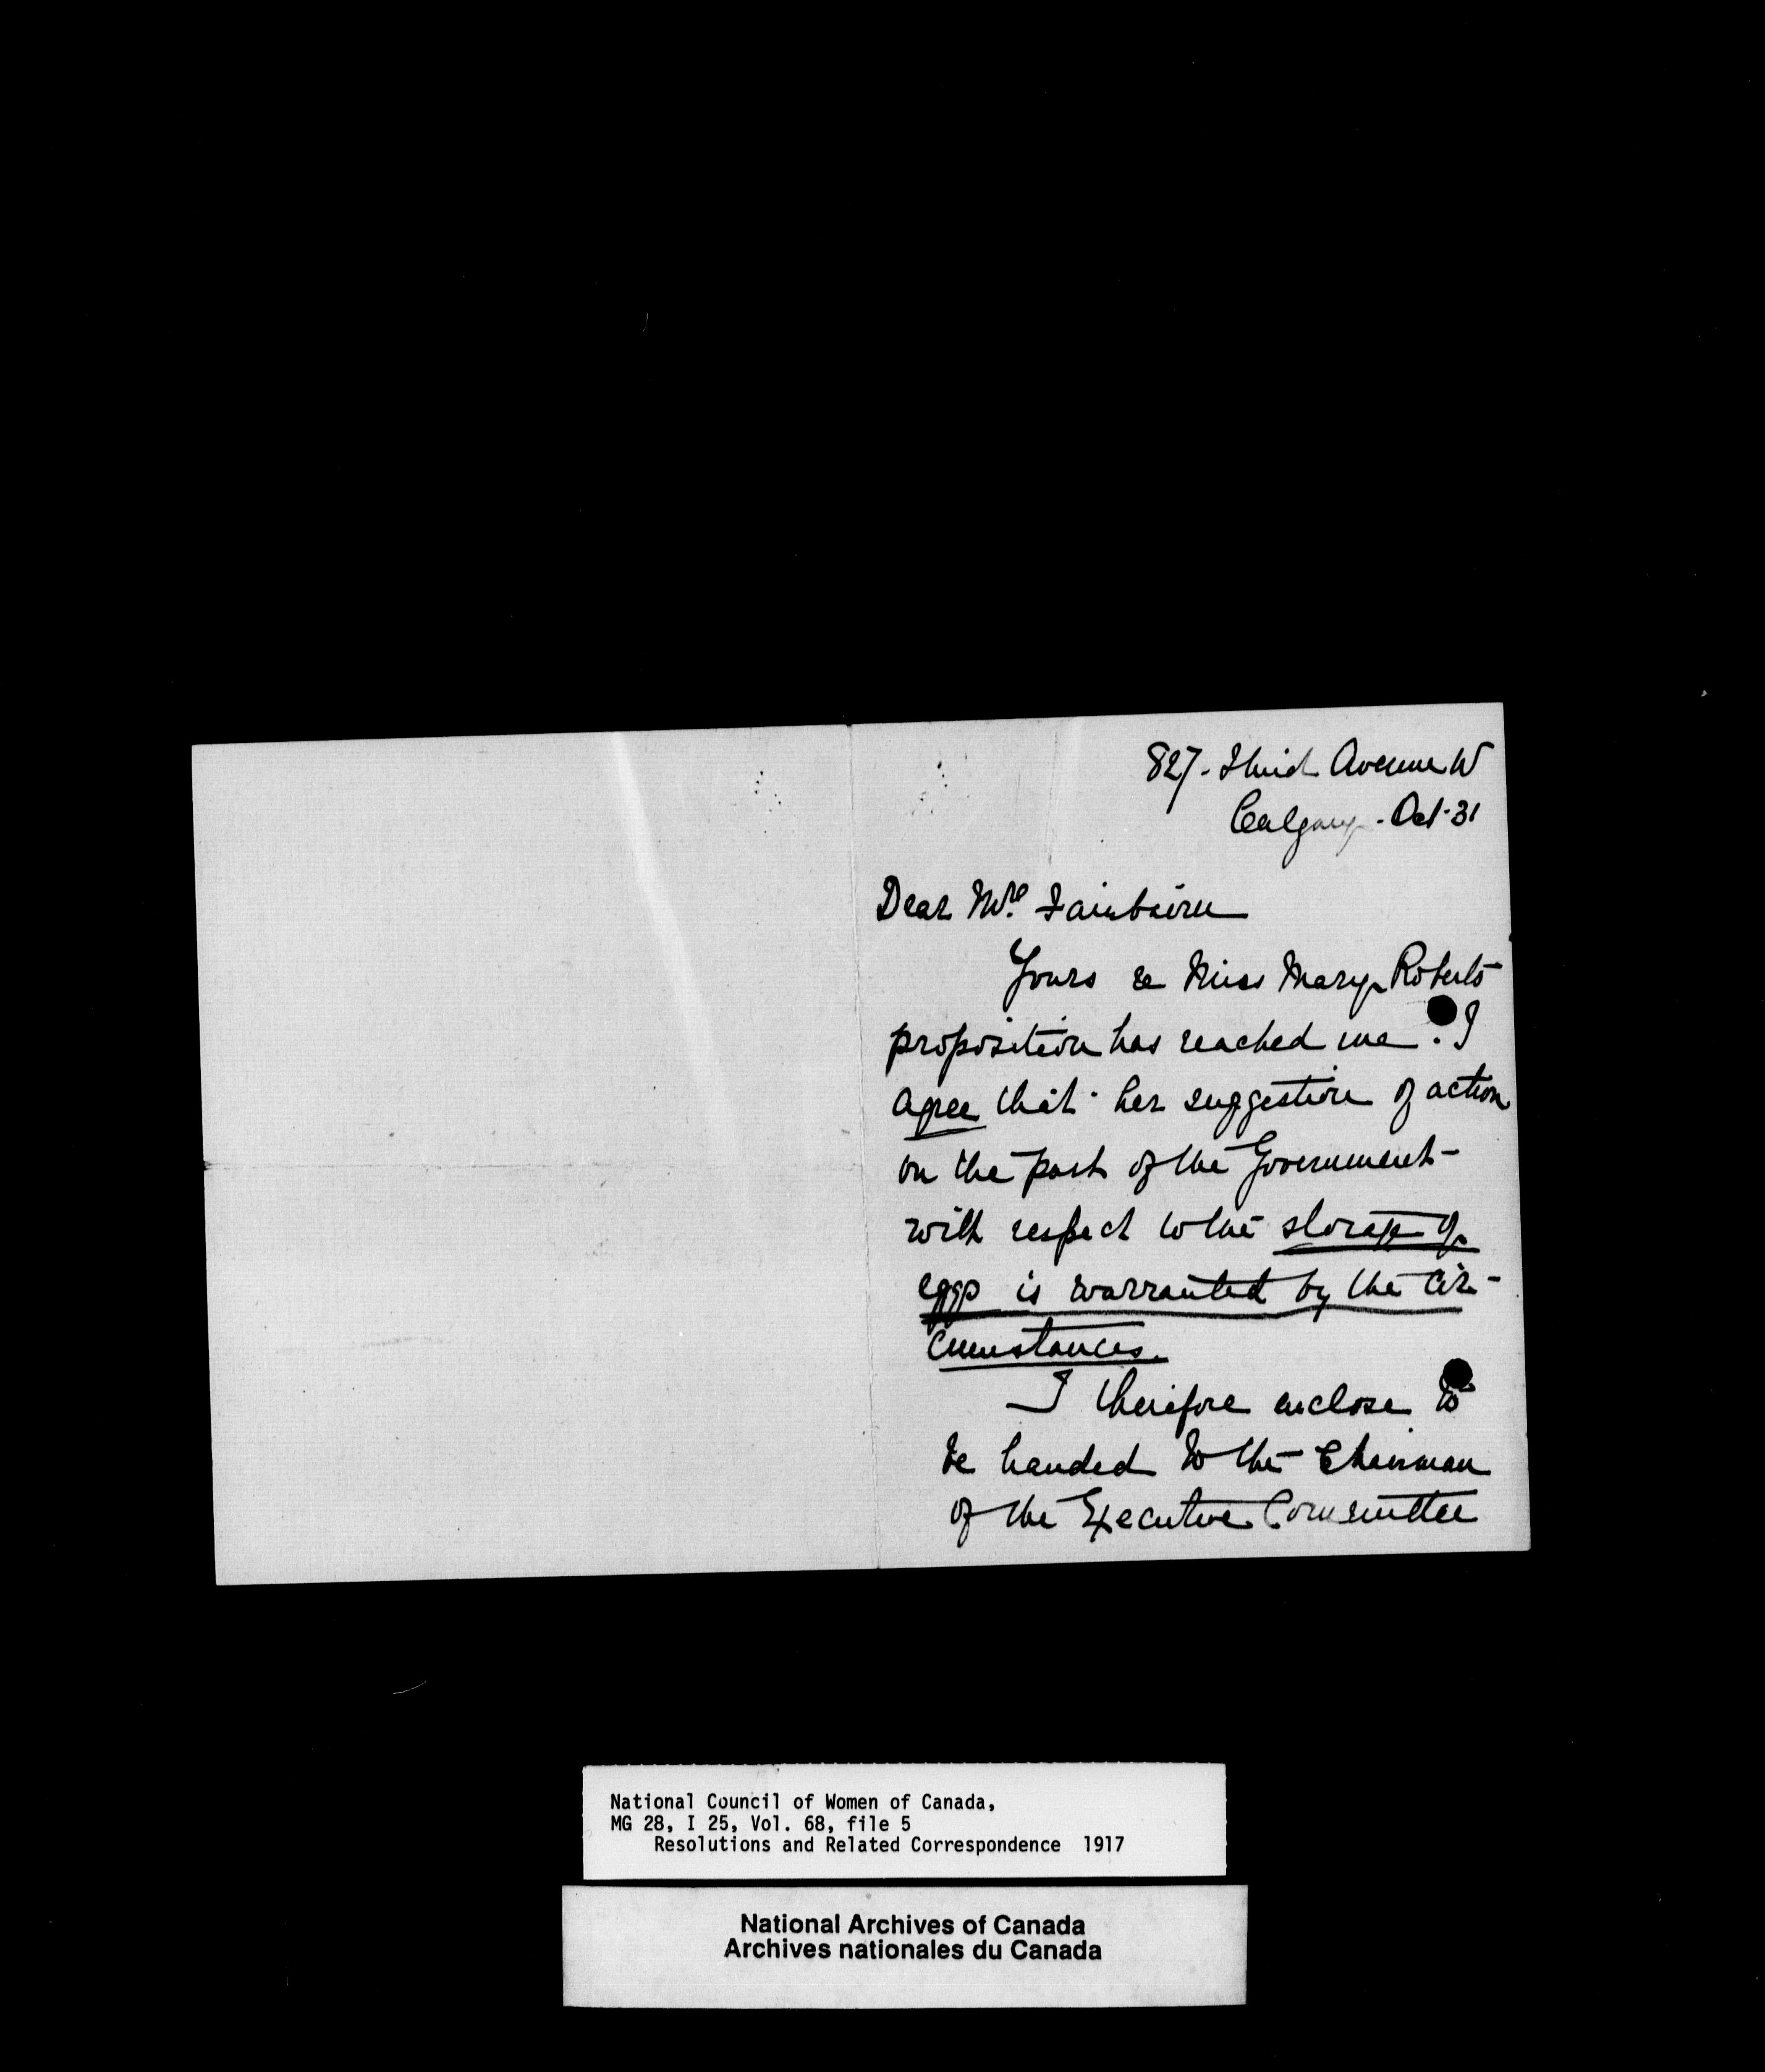 827 - Third Avenue W
Calgary - Oct. 31
Dear Mrs. Fairbairn
Yours re Miss Mary Roberts
proposition has reached me. I
agree that her suggestion of action
on the part of the Government -
with respect to the storage of
eggs is warranted by the cir-
cumstances.
I therefore enclose to
be handed to the Chairman
of the Executive Committee
National Council of Women of Canada,
MG 28, I 25, Vol. 68, file 5
Resolutions and Related Correspondence 1917
National Archives of Canada
Archives nationales du Canada